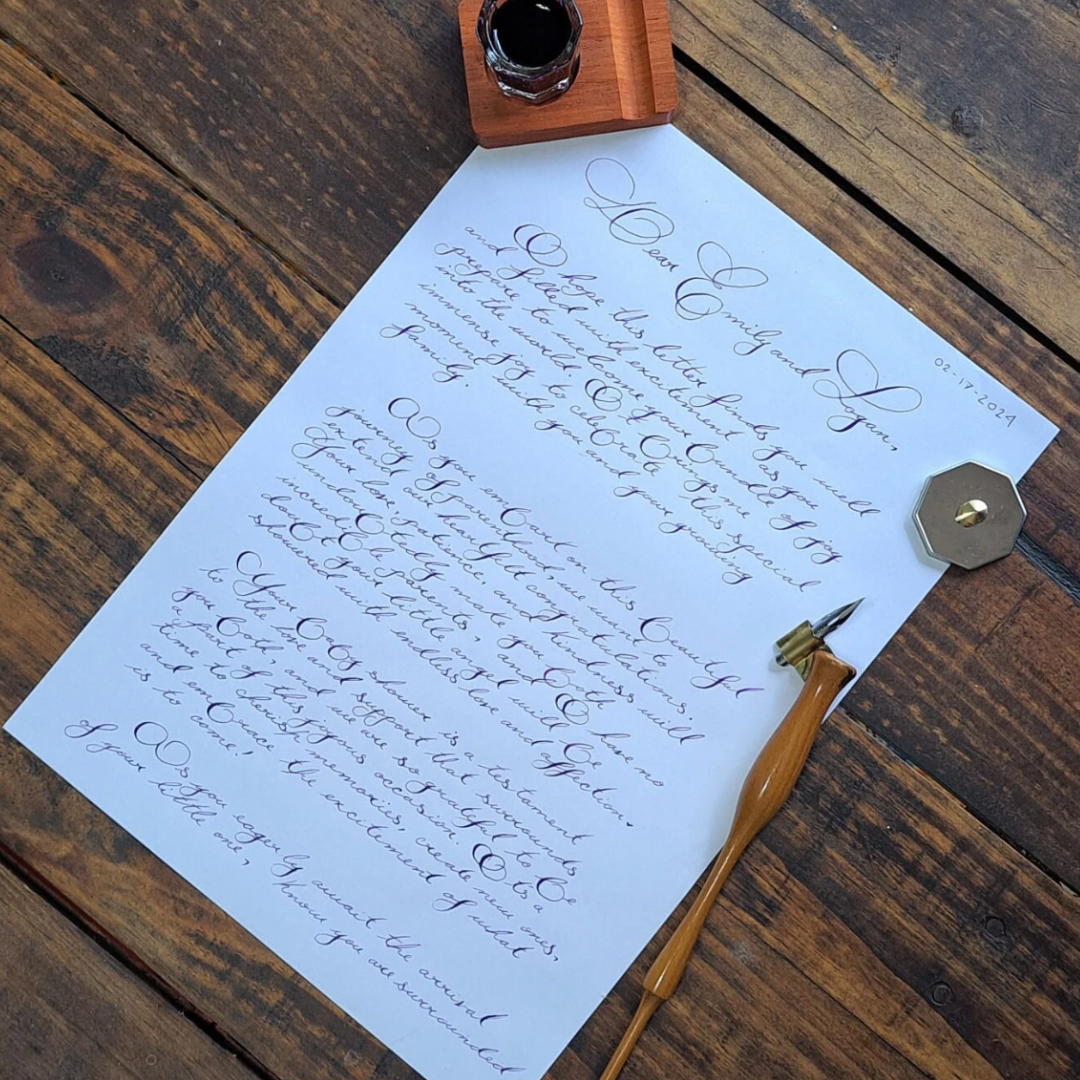 02-17-2024
Dear Emily and Logan,
I hope this letter finds you well
and filled with excitement as you
prepare to welcome your bundle of joy
into the world. It brings me
immense joy to celebrate this special
moment with you and your growing
family.
As you embark on this beautiful
journey of parenthood, we want to
extend our heartfelt congratulations.
Your love, patience, and kindness will
undoubtedly make you both
incredible parents, and I have no
doubt your little angel will be
showered with endless love and affection.
Your baby shower is a testament
to the love and support that surrounds
you both, and we are so grateful to be
a part of this joyous occasion. It's a
time to cherish memories, create new ones,
and embrace the excitement of what
is to come.
As you eagerly await the arrival
of your little one, know you are surrounded